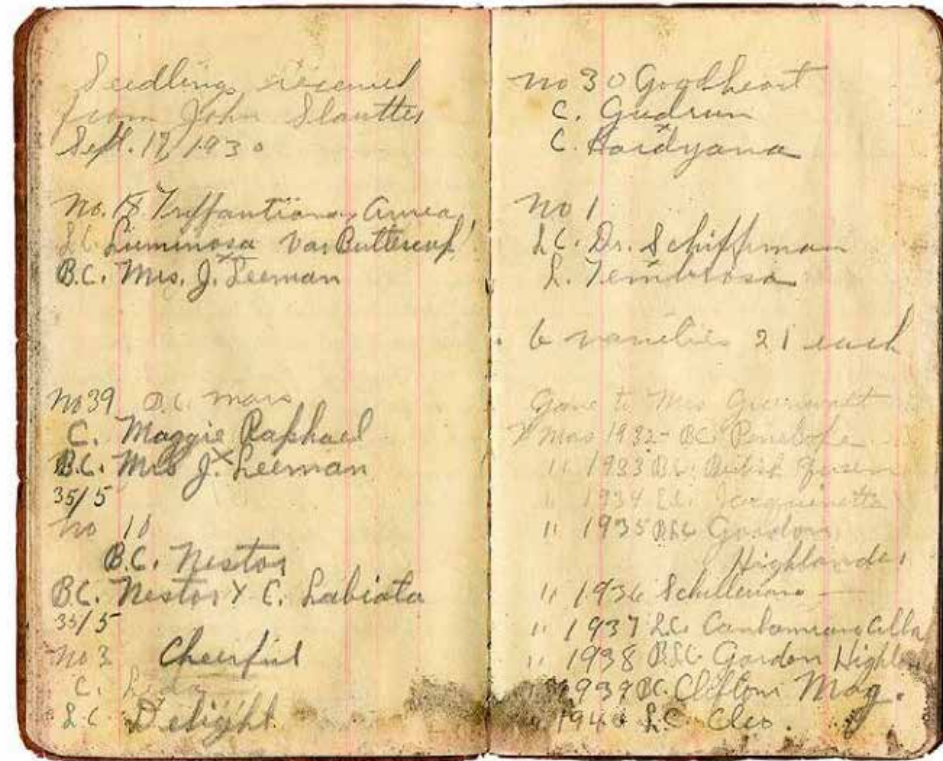 Seedlings received
from John Slautter
Sept. 17, 1930
No. 18 Triffantiana Aurea
L.C. Luminosa Var Buttercup
X
B.C. Mrs. J. Leeman
No 39 B.C. Mars
C. Maggie Raphael
X
B.C. Mrs J. Leeman
35/5
No 10
B.C. Nestor
B.C. Nestor X C. Labiata
35/5
No 3 Cheerful
C.
L.C Delight
No 30 Goodheart
C. Gudrun
x
C. Hardyana
No 1
L.C. Dr. Schiffman
x
L. Tenebrosa
6 varieties 21 each
Gave to Mrs
Xmas 1932 - BC. Penelope
" 1933 British Queen
" 1934 L.C.
" 1935 BLC Gordon
Highlander
" 1936
" 1937 LC. Canhamiana Alba
" 1938 BLC Gordon
" 1939 BC. Cliftoni Mag.
" 1940 L.C. Cleo.